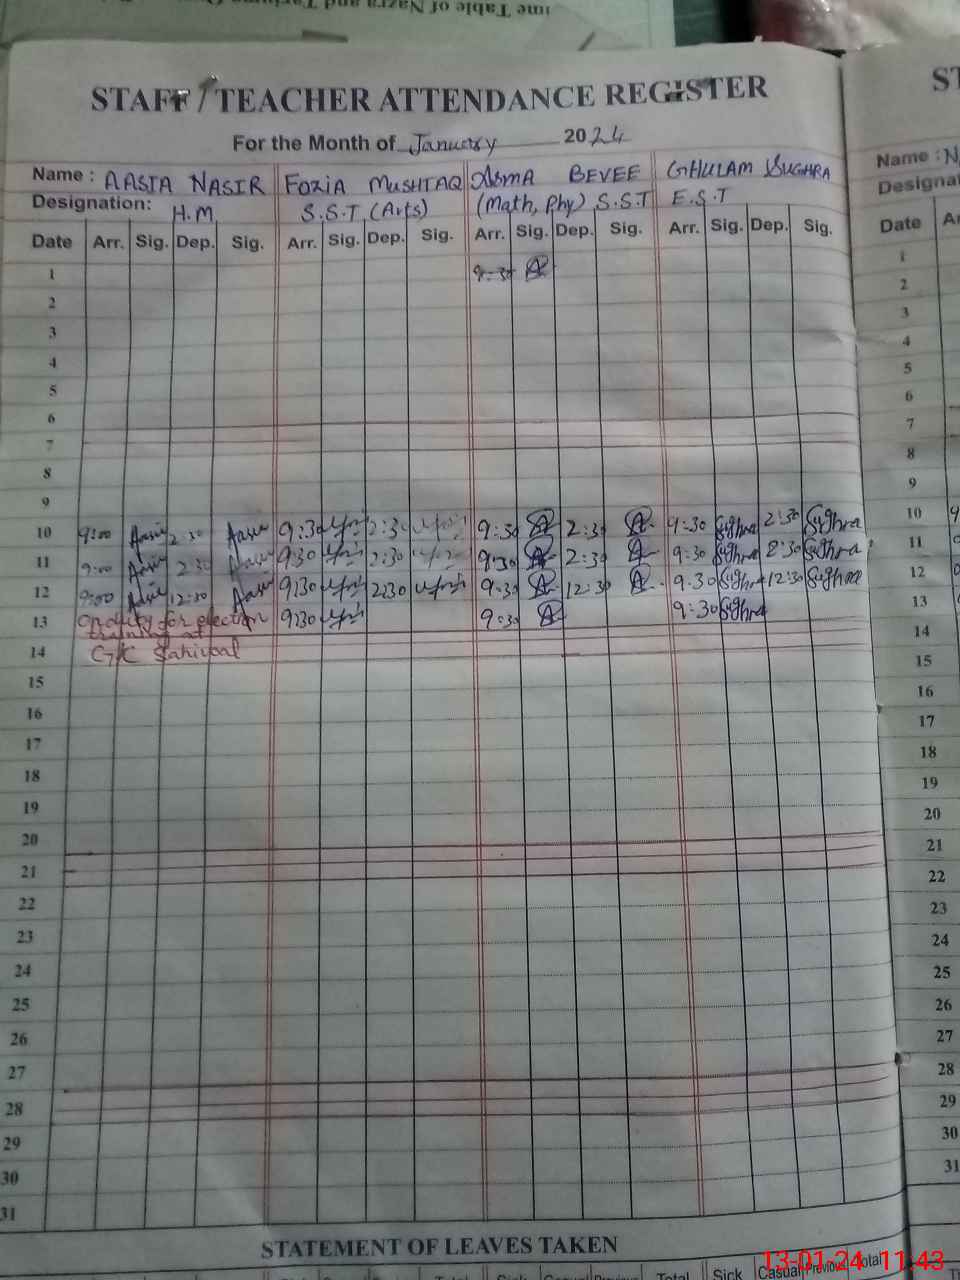 ime Table of Nazra and Tarjuma Qu
STAFF / TEACHER ATTENDANCE REGISTER
For the Month of January 2024
Name : AASIA NASIR FOZIA MUSHTAQ ASMA BEVEE GHULAM SUGHRA
Designation: H.M S.S.T (Arts) (Math, Phy) S.S.T E.S.T
Date Arr. Sig. Dep. Sig. Arr. Sig. Dep. Sig. Arr. Sig. Dep. Sig. Arr. Sig. Dep. Sig.
1 9:30
2
3
4
5
6
7
8
9
10 9:00 Aasia 2:30 Aasia 9:30 2:30 9:30 2:30 9:30 Sughra 2:30 Sughra
11 9:00 Aasia 2:30 Aasia 9:30 2:30 9:30 2:30 9:30 Sughra 2:30 Sughra
12 9:00 Aasia 12:30 Aasia 9:30 2:30 9:30 12:30 9:30 Sughra 12:30 Sughra
13 On duty for election 9:30 9:30 9:30 Sughra
training at
14 GC Sahiwal
15
16
17
18
19
20
21
22
23
24
25
26
27
28
29
30
31
STATEMENT OF LEAVES TAKEN
Sick Casual Previous Total
ST
Name : N
Designat
Date Ar
1
2
3
4
5
6
7
8
9
10
11
12
13
14
15
16
17
18
19
20
21
22
23
24
25
26
27
28
29
30
31
13-01-24 11:43